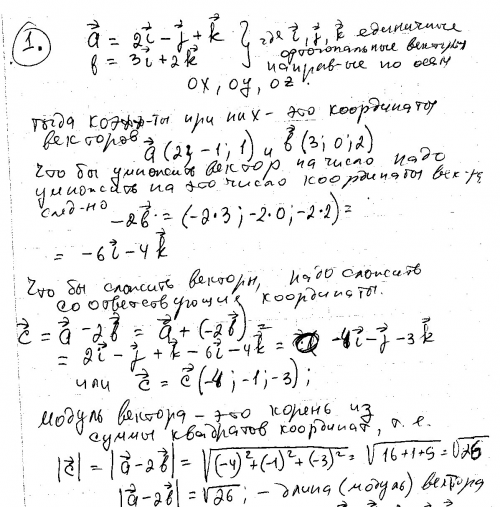 1. a⃗ = 2i⃗ − j⃗ + k⃗ } где i⃗, j⃗, k⃗ единичные
в⃗ = 3i⃗ + 2k⃗ ортогональные векторы
направ-ые по осям
ox, oy, oz.
тогда коэфф-ты при них - это координаты
векторов a⃗ (2; -1; 1) и в⃗ (3; 0; 2)
Что бы умножить вектор на число надо
умножить на это число координаты век-ра
след-но
-2в⃗ = (-2·3; -2·0; -2·2) =
= -6i⃗ - 4k⃗
Что бы сложить векторы, надо сложить
соответствующие координаты.
c⃗ = a⃗ - 2в⃗ = a⃗ + (-2в⃗) =
= 2i⃗ - j⃗ + k⃗ - 6i⃗ - 4k⃗ = -4i⃗ - j⃗ - 3k⃗
или c⃗ = c⃗ (-4; -1; -3);
модуль вектора - это корень из
суммы квадратов координат, т.е.
|c⃗| = |a⃗ - 2в⃗| = √((-4)² + (-1)² + (-3)²) = √(16+1+9) = √26
|a⃗ - 2в⃗| = √26; - длина (модуль) вектора